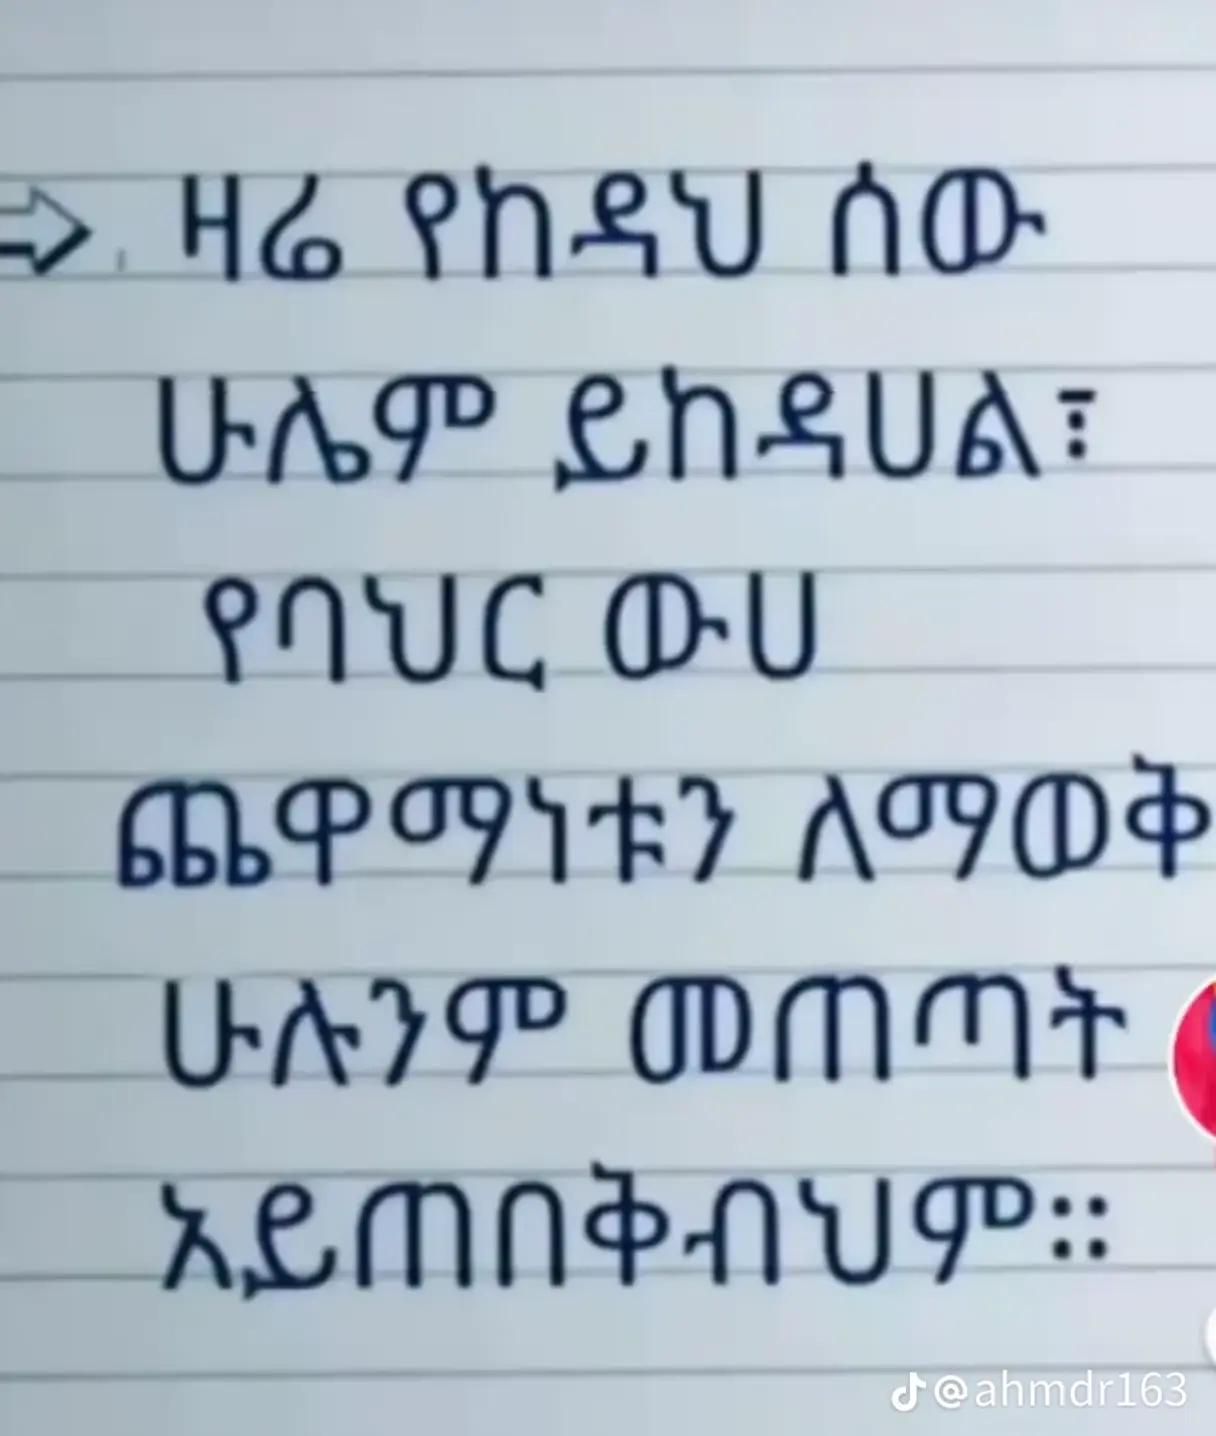 ⇨ ዛሬ የከዳህ ሰው
ሁሌም ይከዳሀል፣
የባህር ውሀ
ጨዋማነቱን ለማወቅ
ሁሉንም መጠጣት
አይጠበቅብህም።
@ahmdr163